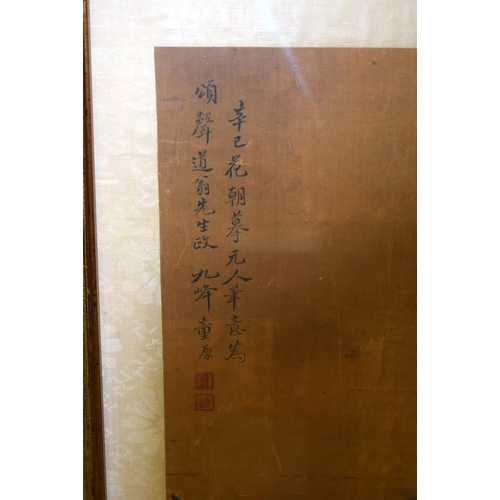 辛巳花朝摹元人筆意為
頌聲道翁先生政 九峰童原